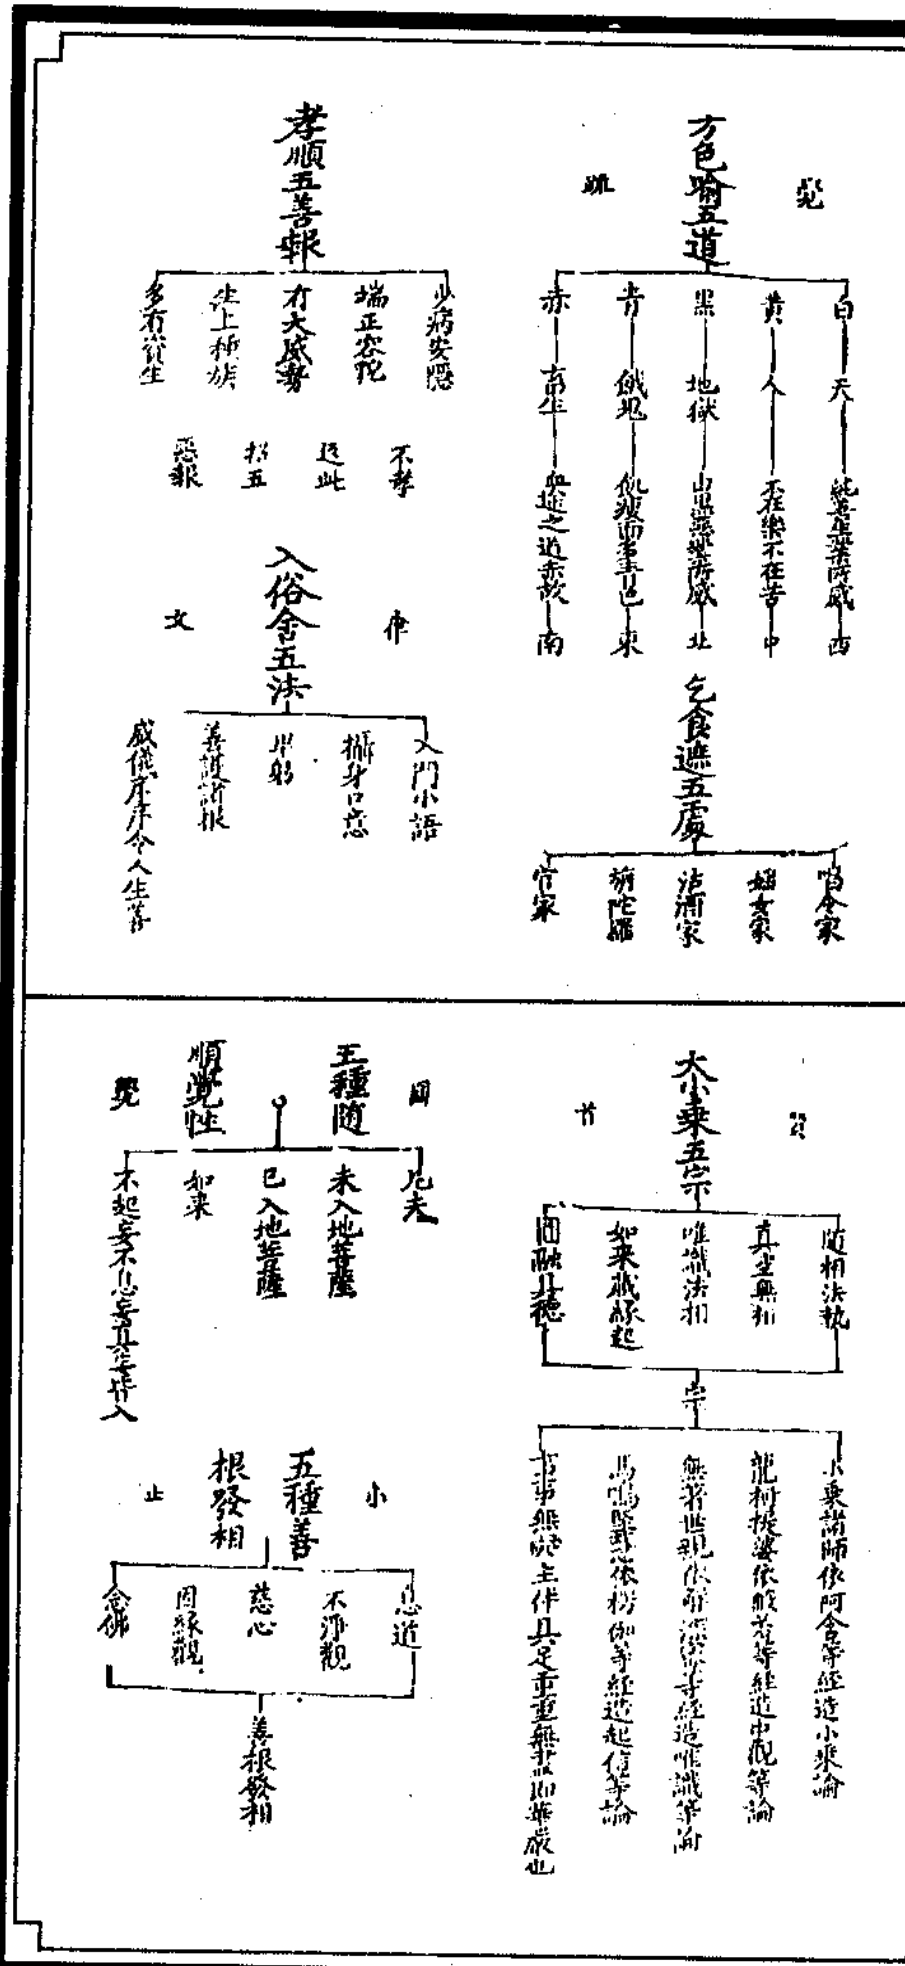 方色喻五道
覺
疏
白 天 純善集業所感 西
黃 人 不在樂不在苦 中
黑 地獄 業所感 北
青 餓鬼 飢瘦而青色 東
赤 畜生 血途之道赤故 南
乞食遮五處
唱令家
婬女家
沽酒家
旃陀羅
官家
孝順五善報
少病安隱
端正容貌
有大威勢
生上種族
多有資生
不孝
返此
招五
惡報
入俗舍五法
律
文
入門小語
攝身口意
卑躬
善護諸根
威儀庠序令人生善
大小乘五宗
賢
首
隨相法執
真空無相
唯識法相
如來藏緣起
圓融具德
宗
小乘諸師依阿含等經造小乘論
龍樹提婆依般若等經造中觀等論
無著世親依解深密等經造唯識等論
馬鳴堅慧依楞伽等經造起信等論
事事無礙主伴具足重重無盡即華嚴也
五種隨
順覺性
圓
覺
凡夫
未入地菩薩
已入地菩薩
如來
不起妄不息妄真妄皆入
五種善
根發相
小
止
息道
不淨觀
慈心
因緣觀
念佛
善根發相